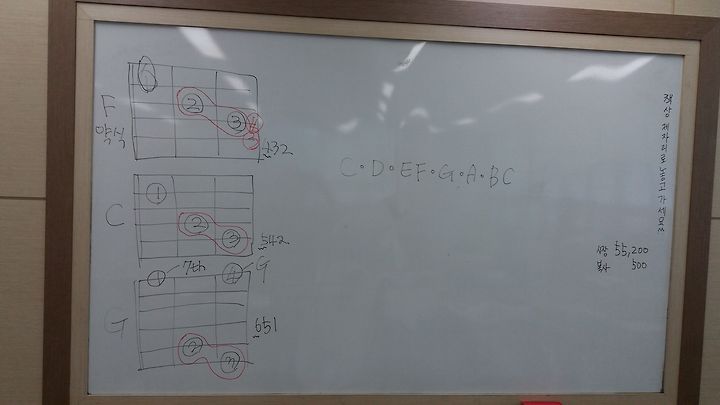 F
약식
2
3
4
3
432
C
1
2
3
542
1
7th
4
G
G
2
3
651
C·D·EF·G·A·BC
책상 제자리로 놓고 가세요
시장 55,200
복사 500